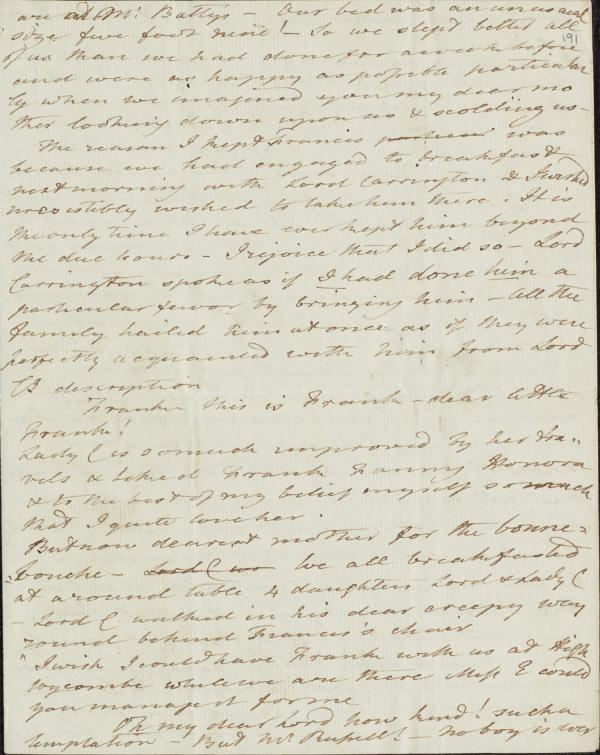 are at Mr. Battys – Our bed was an unusual
size five foot nine! – So we slept better all
191
of us than we had done for a week before
and were as happy as possible particular
ly when we imagined you my dear mo
ther looking down upon us & scolding us –
The reason I kept Francis was
because we had engaged to breakfast
next morning with Lord Carrington & I wished
irresistibly wished to take him there. It is
the only time I have ever kept him beyond
the due hours – I rejoice that I did so – Lord
Carrington spoke as if I had done him a
particular favor by bringing him – All the
family hailed him at once as if they were
perfectly acquainted with him from Lord
C's description
Frank this is Frank – dear little
Frank!
Lady C is so much improved by her tra-
vels & liked Frank Fanny Honora
& to the best of my belief myself so much
that I quite love her.
But now dearest mother for the bonne=
=bouche – Lord C was We all breakfasted
at a round table 4 daughters Lord & Lady C
– Lord C walked in his dear creepy way
round behind Francis's chair
"I wish I could have Frank with us at High
Wycombe while we are there Miss E could
you manage it for me
Oh my dear Lord how kind! such a
temptation – But Mr. Russell! – no boy is ever